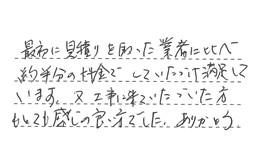 最初に見積りを取った業者に比べ
約半分の料金でしていただけ満足して
います。又工事に来ていただいた方
もとても感じの良い方でした。ありがとう